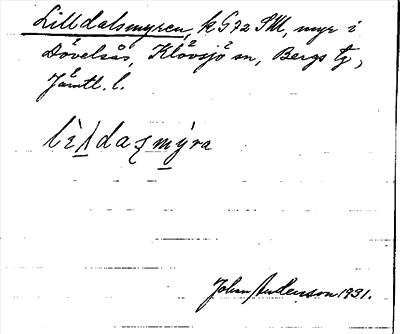 Lilldalsmyren, k G72 SM, myr i
Dövelsås, Klövsjö sn, Bergs tg,
Jämtl. l.
lìldaςmýra
Johan Andersson 1931.